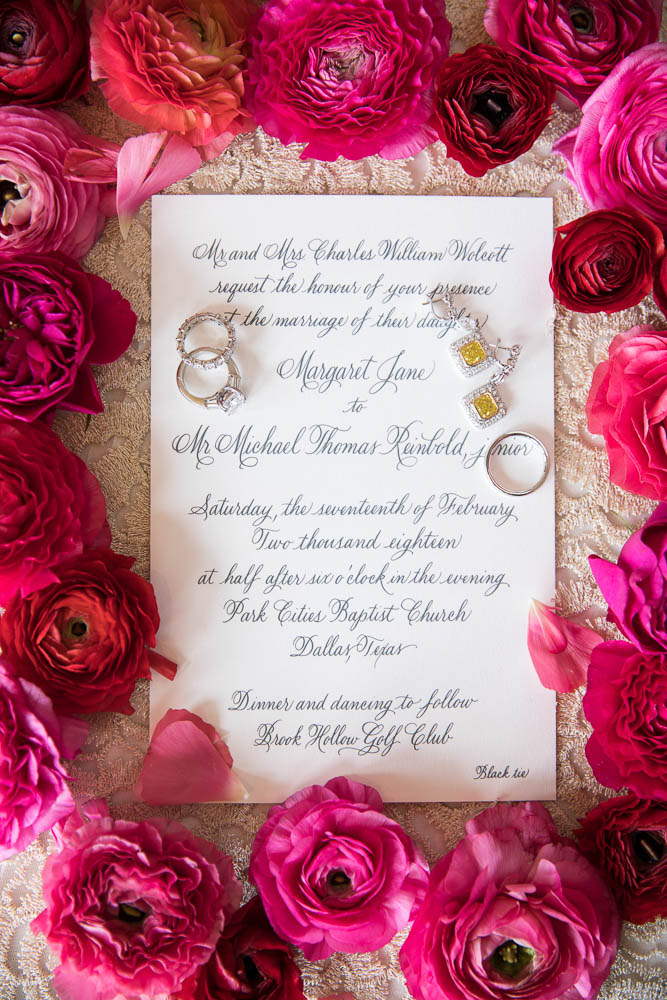 Mr and Mrs Charles William Wolcott
request the honour of your presence
at the marriage of their daughter
Margaret Jane
to
Mr Michael Thomas Reinbold, junior
Saturday, the seventeenth of February
Two thousand eighteen
at half after six o'clock in the evening
Park Cities Baptist Church
Dallas, Texas
Dinner and dancing to follow
Brook Hollow Golf Club
Black tie